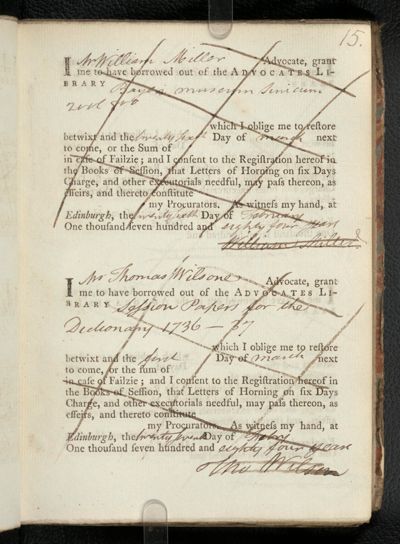 15.
I Mr William Miller Advocate, grant
me to have borrowed out of the ADVOCATES LI-
BRARY Bayer museum Sinicum
2 vol 8vo
which I oblige me to reſtore
betwixt and the twenty sixth Day of march next
to come, or the Sum of
in caſe of Failzie; and I conſent to the Regiſtration hereof in
the Books of Seſſion, that Letters of Horning on ſix Days
Charge, and other executorials needful, may paſs thereon, as
effeirs, and thereto conſtitute
my Procurators. As witneſs my hand, at
Edinburgh, the twenty sixth Day of February
One thouſand ſeven hundred and eighty four years
William Miller
I Mr Thomas Wilsone Advocate, grant
me to have borrowed out of the ADVOCATES LI-
BRARY Session Papers for the
Dictionary 1736 — 37
which I oblige me to reſtore
betwixt and the first Day of march next
to come, or the ſum of
in caſe of Failzie; and I conſent to the Regiſtration hereof in
the Books of Seſſion, that Letters of Horning on ſix Days
Charge, and other executorials needful, may paſs thereon, as
effeirs, and thereto conſtitute
my Procurators. As witneſs my hand, at
Edinburgh, the twenty Day of Febry
One thouſand ſeven hundred and eighty four years
Tho Wilson